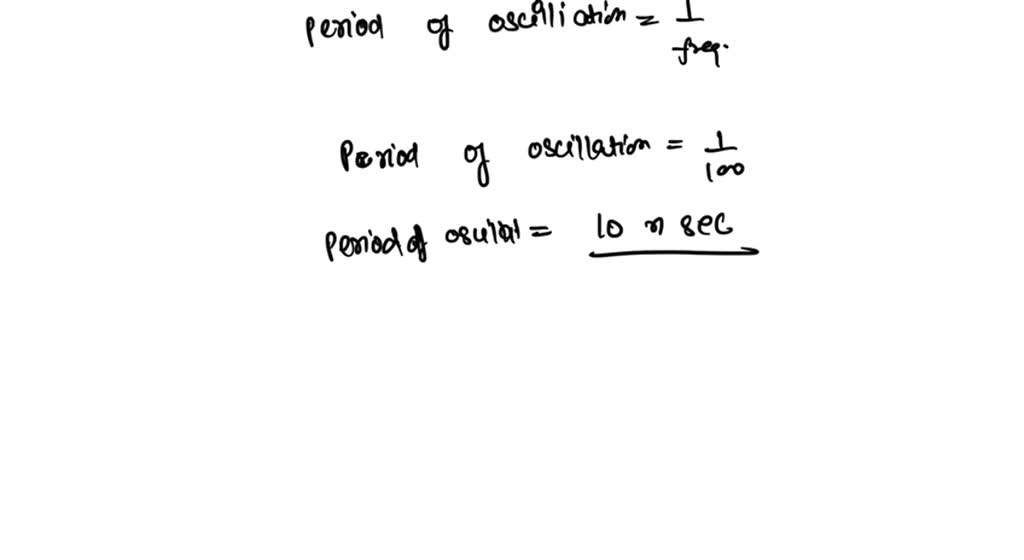 Period of oscilliation = 1/freq.
Period of oscillation = 1/100
Period of osulat = 10 n sec